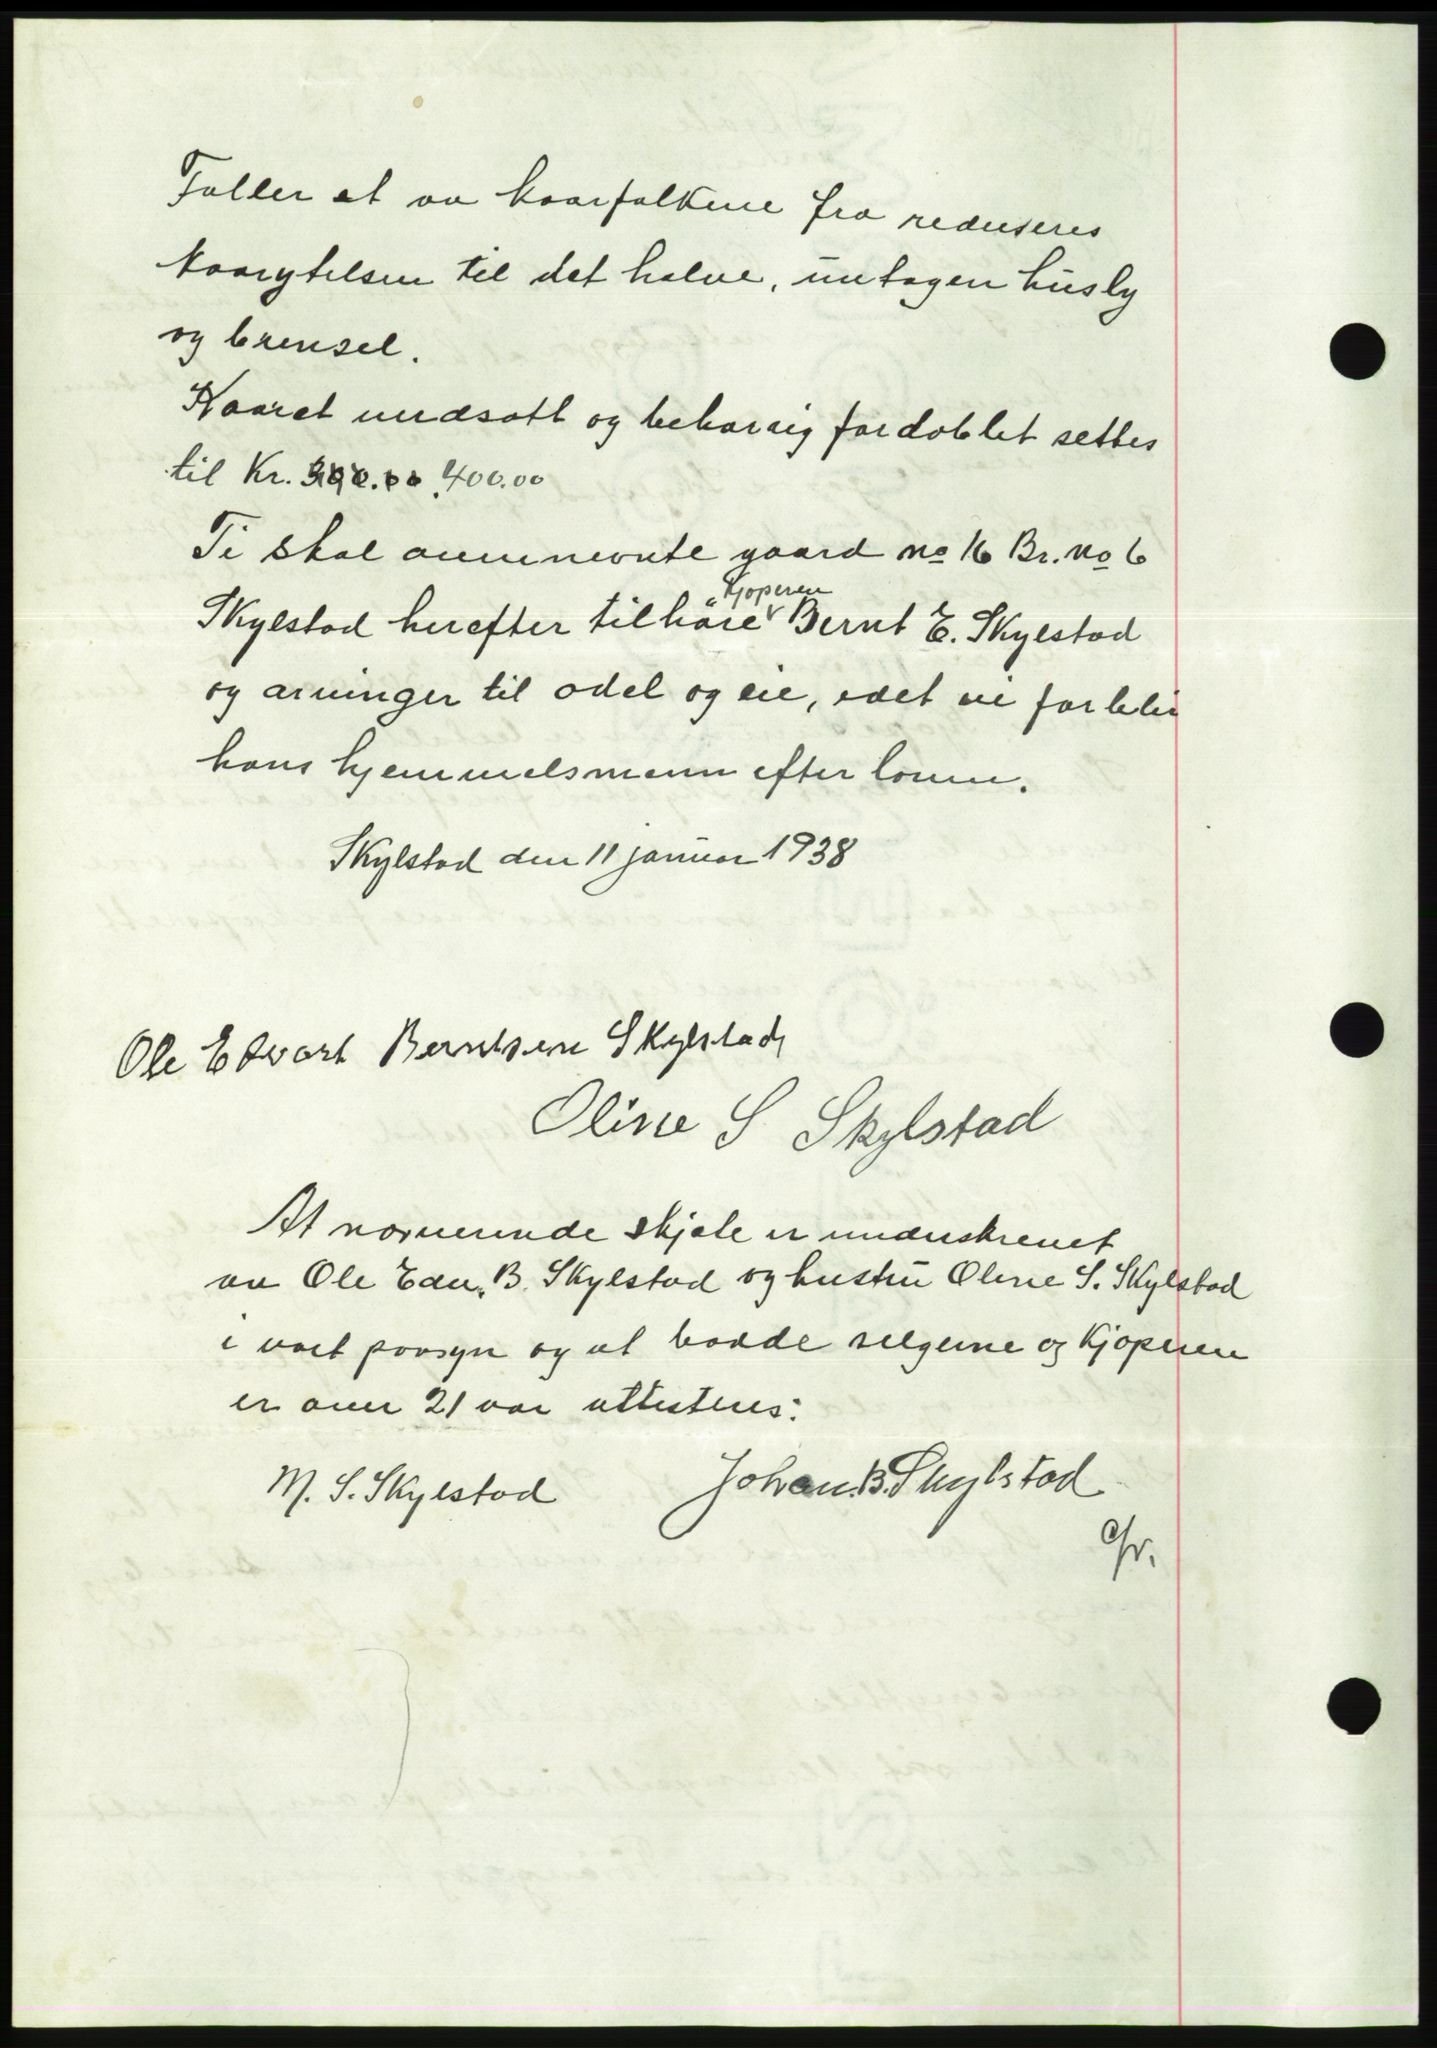 Faller et av kaarfolkene fra reduseres
kaarytelsen til det halve, untagen husly
og brensel.
Kaaret undsatt og beharsig fordoblet settes
til Kr. 400.00
Ti skal ovennevnte gaard No 16 Br. No 6
Skylstad herefter tilhöre Kjoperen Bernt E. Skylstad
og arvinger til odel og eie, idet vi forblir
hans hjemmelsmenn efter loven.
Skylstad den 11 januar 1938
Ole Edvart Berntsen Skylstad
Oline S Skylstad
At nærverende skjøte er underskrevet
av Ole Edv. B. Skylstad og hustru Oline S. Skylstad
i vort paasyn og at baade selgerne og Kjoperen
er over 21 aar attesteres:
M. S. Skylstad Johan B. Skylstad